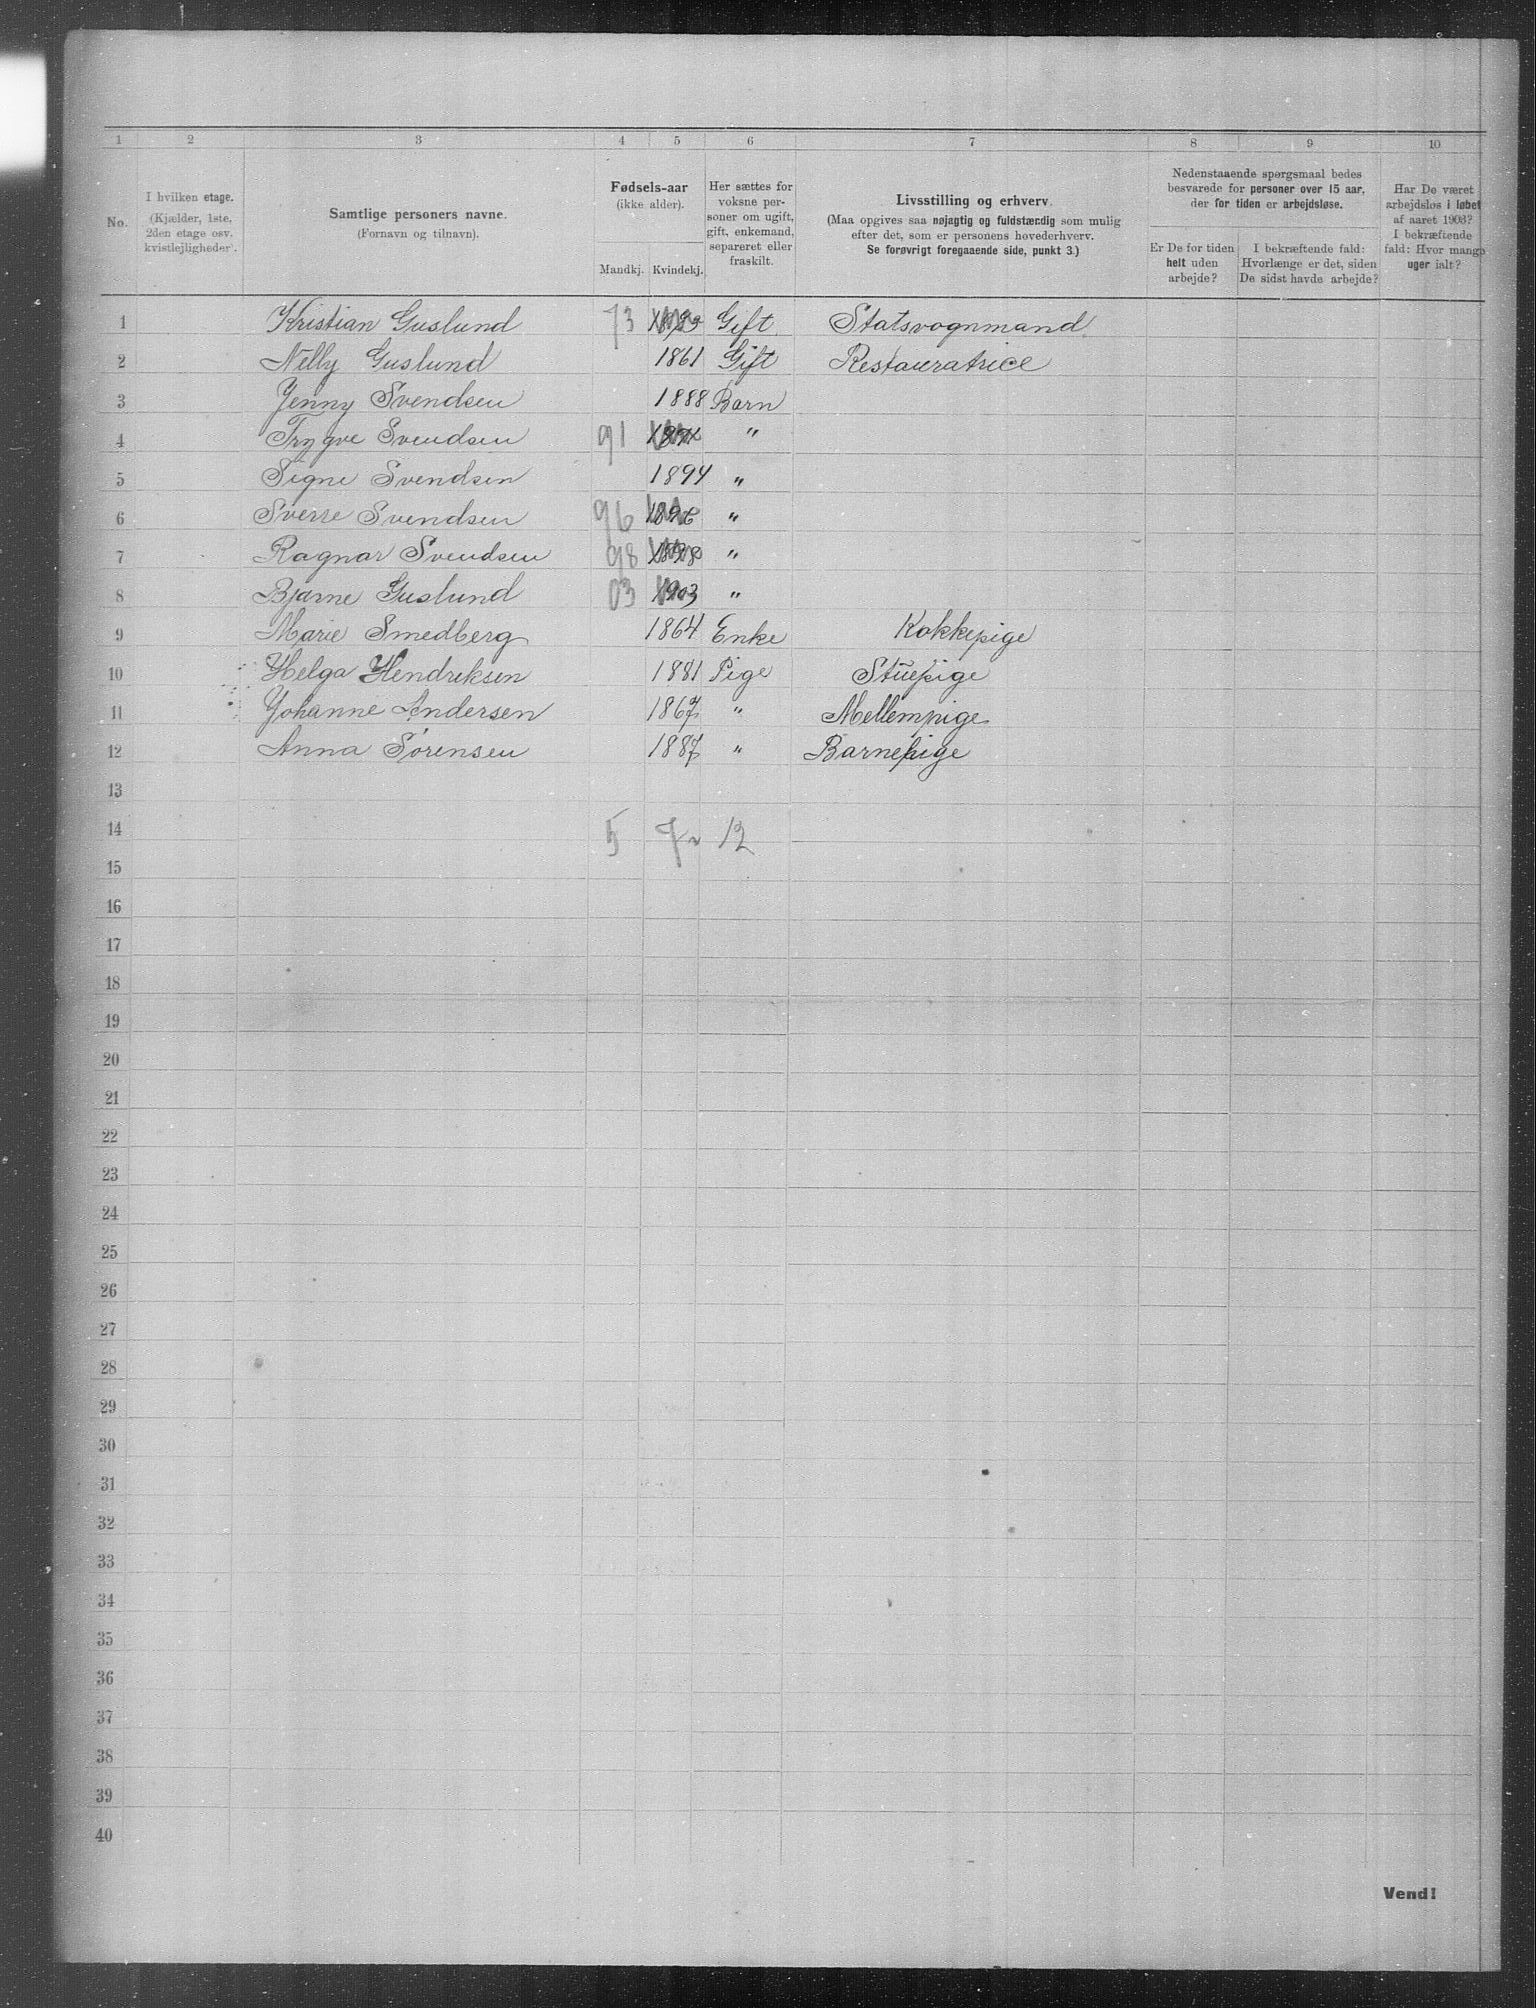 1 2 3 4 5 6 7 8 9 10
No.
I hvilken etage.
(Kjælder, 1ste,
2den etage osv.
kvistlejligheder).
Samtlige personers navne.
(Fornavn og tilnavn).
Fødsels-aar
(ikke alder).
Mandkj. Kvindekj.
Her sættes for
voksne per-
soner om ugift,
gift, enkemand,
separeret eller
fraskilt.
Livsstilling og erhverv.
(Maa opgives saa nøjagtig og fuldstærdig som mulig
efter det, som er personens hovederhverv.
Se forøvrigt foregaaende side, punkt 3.)
Nedenstaaende spørgsmaal bedes
besvarede for personer over 15 aar,
der for tiden er arbejdsløse.
Er De for tiden
helt uden
arbejde?
I bekræftende fald:
Hvorlænge er det, siden
De sidst havde arbejde?
Har De været
arbejdsløs i løbet
af aaret 1903?
I bekræftende
fald: Hvor mange
uger ialt?
1 Kristian Guslund 73 Gift Statsvognmand
2 Nelly Guslund 1861 Gift Restauratrice
3 Jenny Svendsen 1888 Barn
4 Trygve Svendsen 91 1891 "
5 Signe Svendsen 1894 "
6 Sverre Svendsen 96 1896 "
7 Ragnar Svendsen 98 1898 "
8 Bjarne Guslund 03 1903 "
9 Marie Smedberg 1864 Enke Kokkepige
10 Helga Hendriksen 1881 Pige Stuepige
11 Johanne Andersen 1867 " Mellempige
12 Anna Sørensen 1887 " Barnepige
13
14 5 7 12
15
16
17
18
19
20
21
22
23
24
25
26
27
28
29
30
31
32
33
34
35
36
37
38
39
40
Vend!